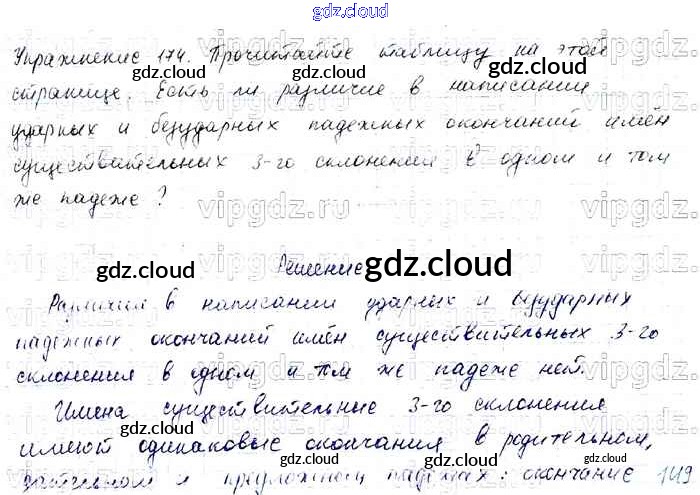 gdz.cloud
Упражнение 174. Прочитайте таблицу на этой
странице. Есть ли различие в написании
ударных и безударных падежных окончаний имён
существительных 3-го склонения в одном и том
же падеже?
Решение
Различия в написании ударных и безударных
падежных окончаний имён существительных 3-го
склонения в одном и том же падеже нет.
Имена существительные 3-го склонения
имеют одинаковые окончания в родительном,
дательном и предложном падежах: окончание
149